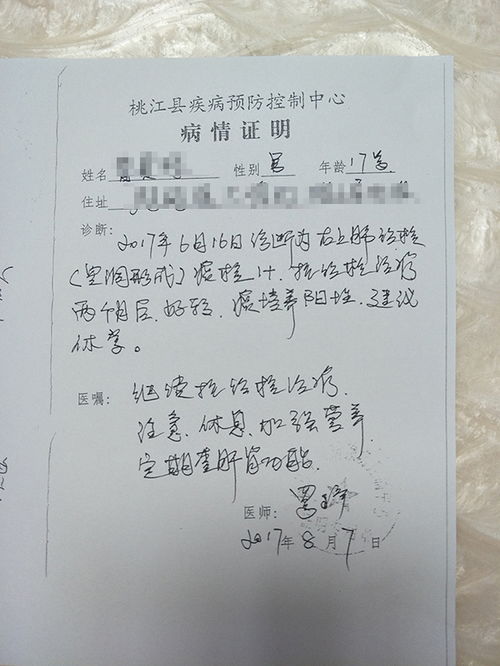 桃江县疾病预防控制中心
病情证明
姓名 性别 男 年龄 17岁
住址
诊断: 2017年6月16日诊断为右上肺结核
(空洞形成)痰检1+. 抗结核治疗
两个月后, 好转, 痰培养阳性, 建议
休学。
医嘱: 继续抗结核治疗.
注意休息, 加强营养.
定期查肝肾功能.
医师:
2017年8月7日